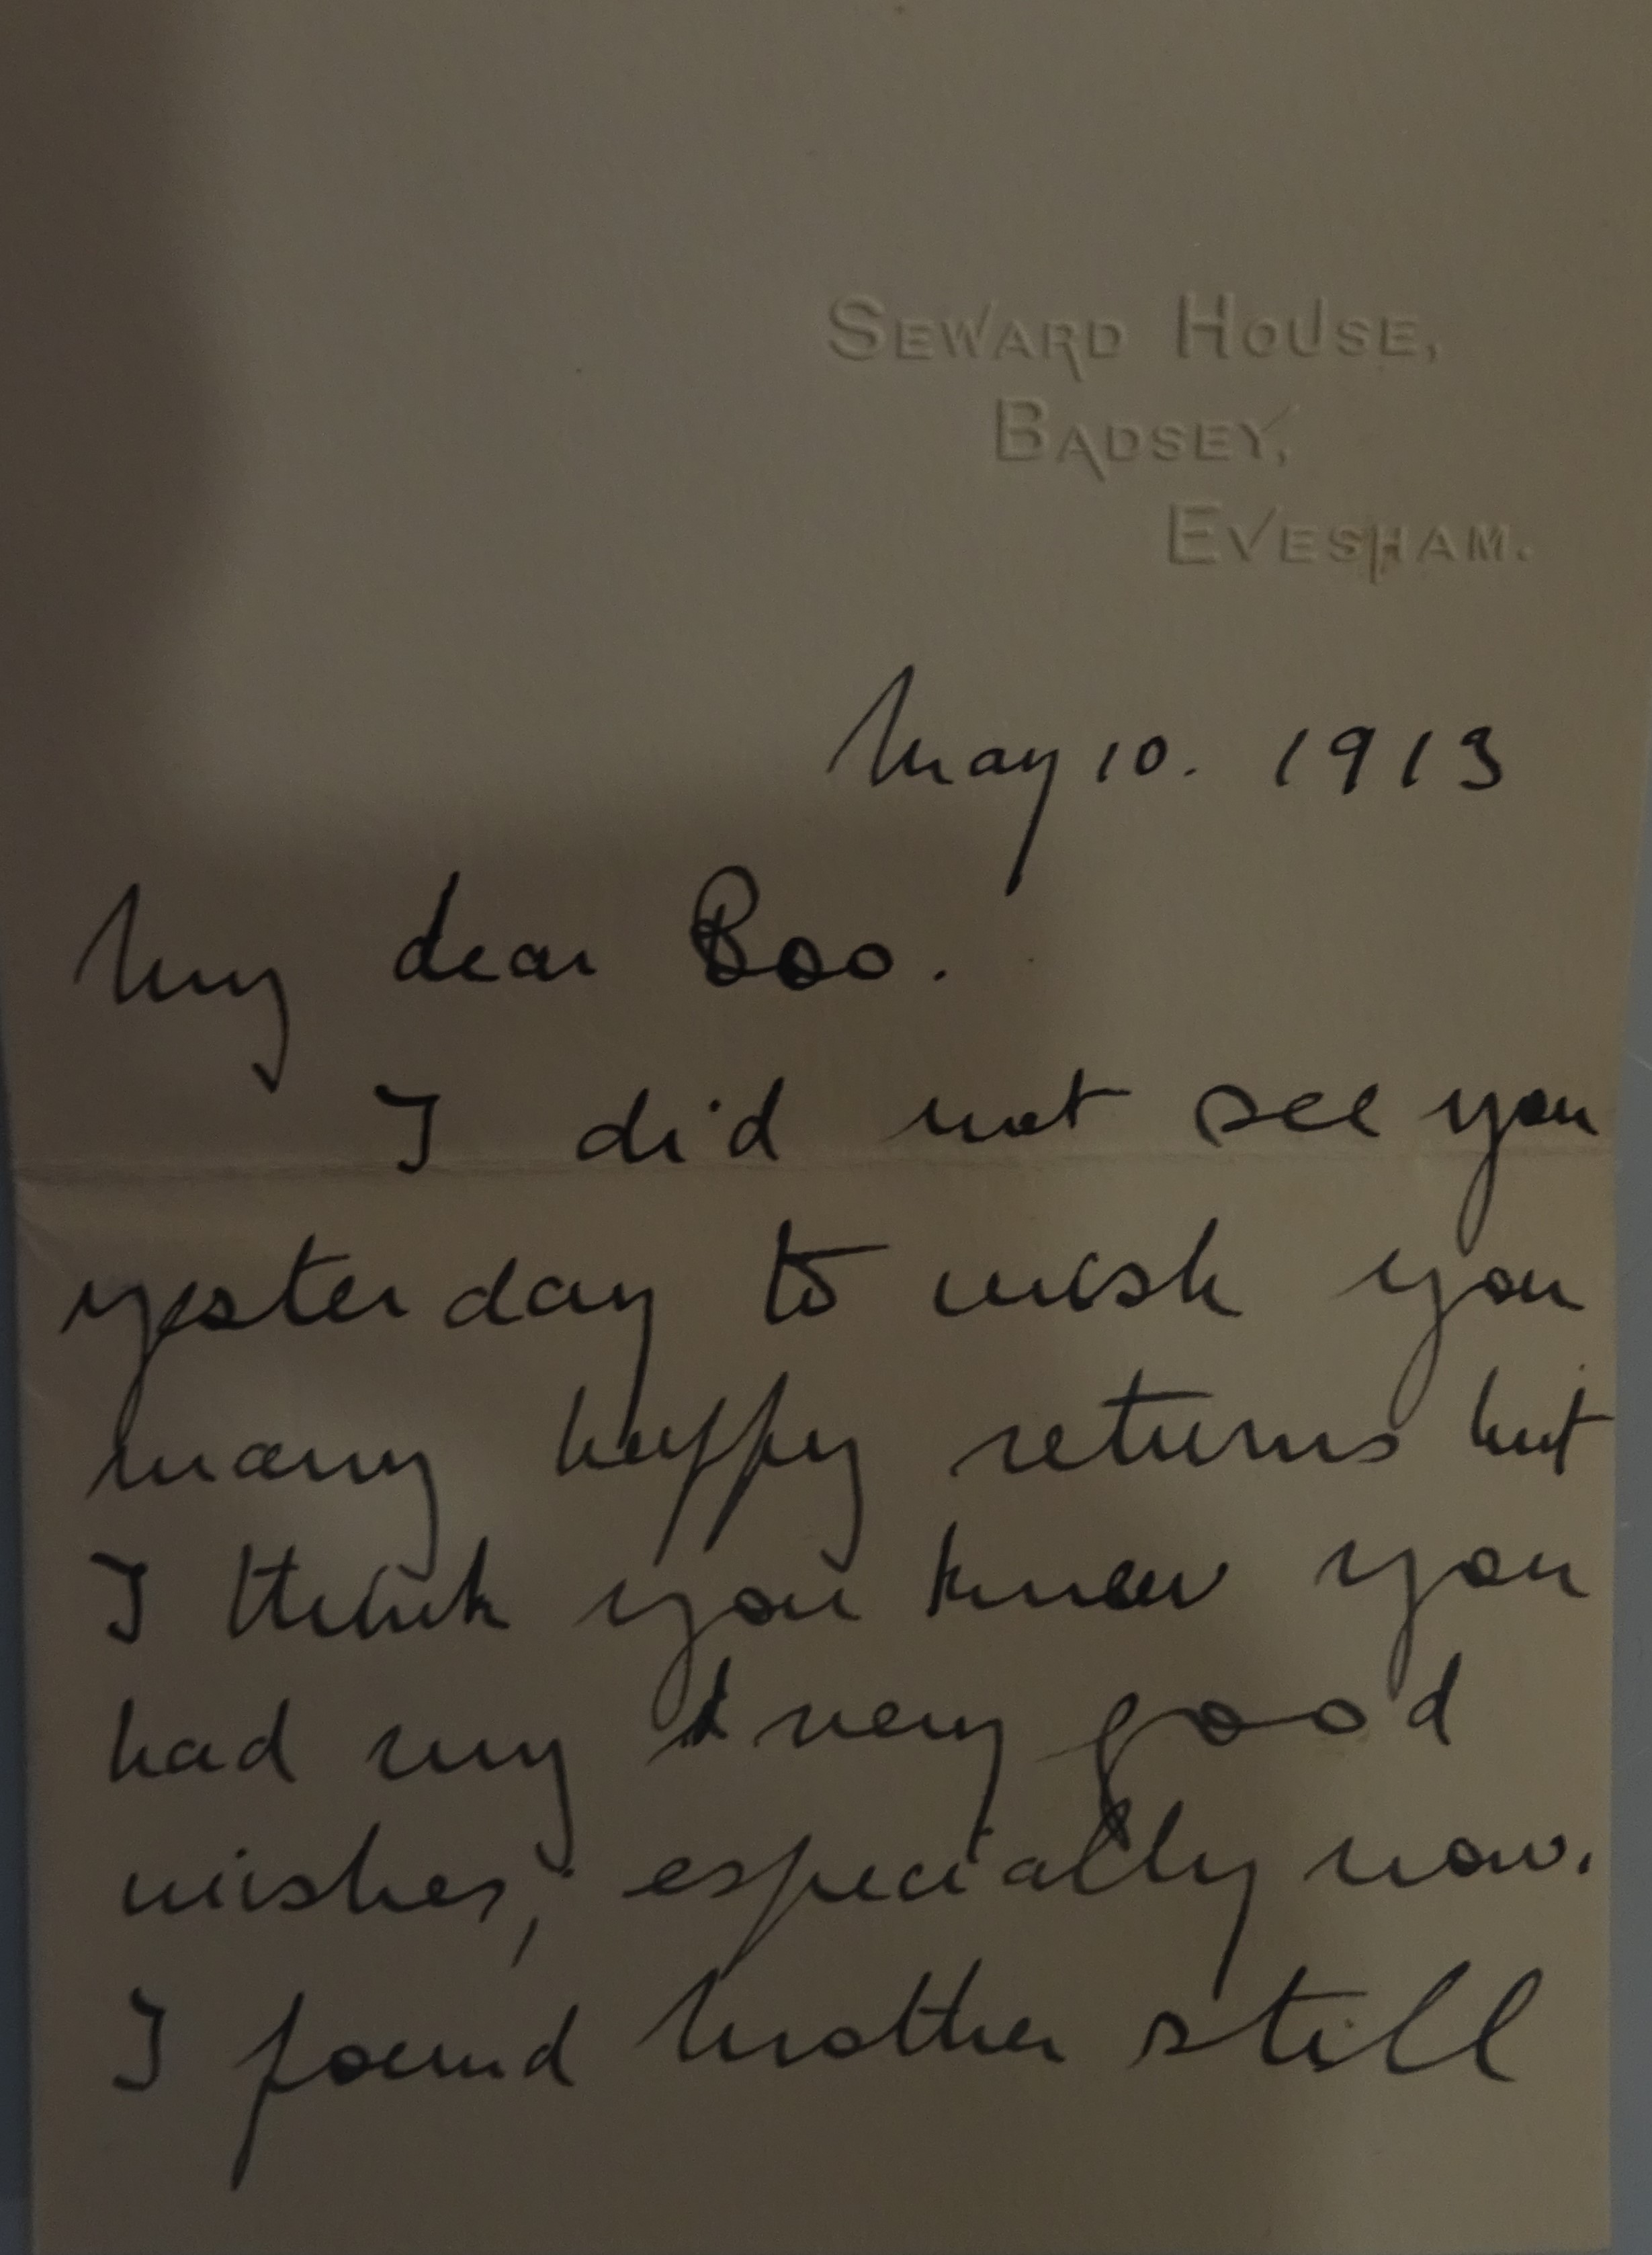 SEWARD HOUSE,
BADSEY,
EVESHAM.
May 10. 1913
My dear Boo.
I did not see you
yesterday to wish you
many happy returns but
I think you knew you
had my very good
wishes, especially now.
I found Mother still